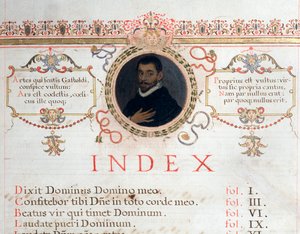 Artes qui sentis Gastoldi,
conspice vultum:
Ars est coelestis, coeli
cus ille quoq;
Proprius est vultus: vir
tus sic propria cantus,
Nam par nullus erat:
par quoq; nullus erit.
INDEX
Dixit Dominus Domino meo. fol. I.
Confitebor tibi Dñe in toto corde meo. fol. III.
Beatus vir qui timet Dominum. fol. VI.
Laudate pueri Dominum. fol. IX.